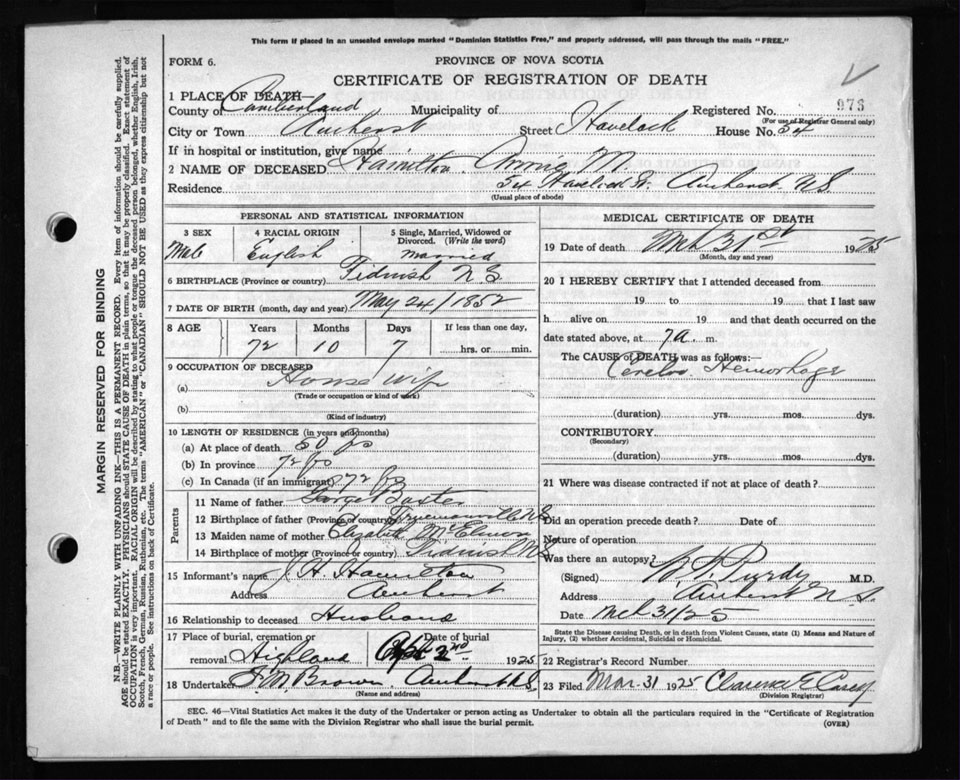 This form if placed in an unsealed envelope marked "Dominion Statistics Free," and properly addressed, will pass through the mails "FREE."
FORM 6.
PROVINCE OF NOVA SCOTIA
CERTIFICATE OF REGISTRATION OF DEATH
1 PLACE OF DEATH—
County of Cumberland Municipality of Registered No. 973
(For use of Registrar General only)
City or Town Amherst Street Havelock House No. 54
If in hospital or institution, give name
2 NAME OF DECEASED Hamilton Annie M.
Residence 54 Havelock St. Amherst N.S.
(Usual place of abode)
PERSONAL AND STATISTICAL INFORMATION
3 SEX 4 RACIAL ORIGIN 5 Single, Married, Widowed or Divorced. (Write the word)
Male English married
6 BIRTHPLACE (Province or country) Tidnish N S
7 DATE OF BIRTH (month, day and year) May 24/1852
8 AGE Years Months Days If less than one day,
72 10 7 hrs. or min.
9 OCCUPATION OF DECEASED
(a) House wife
(Trade or occupation or kind of work)
(b)
(Kind of industry)
10 LENGTH OF RESIDENCE (in years and months)
(a) At place of death 50 yrs
(b) In province 72 yrs
(c) In Canada (if an immigrant) 72 yrs
Parents
11 Name of father George Baxter
12 Birthplace of father (Province or country) N.S.
13 Maiden name of mother Elizabeth
14 Birthplace of mother (Province or country) Tidnish N.S.
15 Informant's name J. H. Hamilton
Address Amherst
16 Relationship to deceased Husband
17 Place of burial, cremation or removal Highland Date of burial 2nd 1925
18 Undertaker F. M. Brown. Amherst N.S.
(Name and address)
MEDICAL CERTIFICATE OF DEATH
19 Date of death Mch 31st 1925
(Month, day and year)
20 I HEREBY CERTIFY that I attended deceased from
19 to 19 that I last saw
h alive on 19 and that death occurred on the
date stated above, at 7 a. m.
The CAUSE of DEATH was as follows:—
Hemorhage
(duration) yrs. mos. dys.
CONTRIBUTORY
(Secondary)
(duration) yrs. mos. dys.
21 Where was disease contracted if not at place of death?
Did an operation precede death? Date of
Nature of operation
Was there an autopsy?
(Signed) Purdy M.D.
Address Amherst N.S.
Date Mch 31/25
State the Disease causing Death, or in death from Violent Causes, state (1) Means and Nature of Injury, (2) whether Accidental, Suicidal or Homicidal.
22 Registrar's Record Number
23 Filed Mar. 31 1925 Clarence E Casey
(Division Registrar)
SEC. 46—Vital Statistics Act makes it the duty of the Undertaker or person acting as Undertaker to obtain all the particulars required in the "Certificate of Registration
of Death" and to file the same with the Division Registrar who shall issue the burial permit.
(OVER)
MARGIN RESERVED FOR BINDING
N.B.—WRITE PLAINLY WITH UNFADING INK—THIS IS A PERMANENT RECORD. Every item of information should be carefully supplied.
AGE should be stated EXACTLY. PHYSICIANS should STATE CAUSE OF DEATH in plain terms, so that it may be properly classified. Exact statement of
OCCUPATION is very important. RACIAL ORIGIN will be described by stating to what people or tongue the deceased person belonged, whether English, Irish,
Scotch, French, German, Russian, Ruthenian, etc. The terms "AMERICAN" or "CANADIAN" SHOULD NOT BE USED as they express citizenship but not
a race or people. See instructions on back of Certificate.